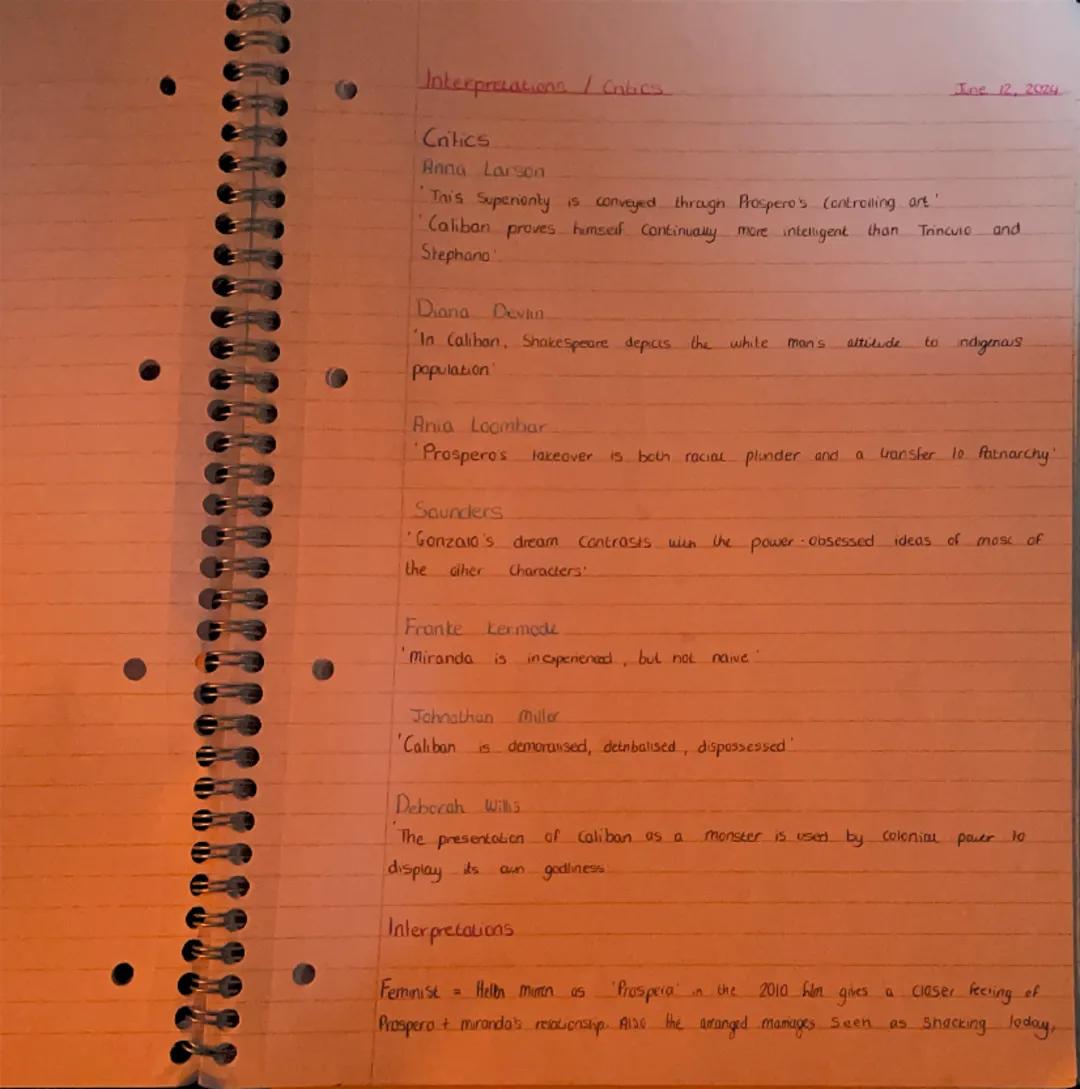 Interpretations / Critics
June 12, 2024
Critics
Anna Larson
'This Superiority is conveyed through Prospero's controlling art'
'Caliban proves himself continually more intelligent than Trinculo and
Stephano'
Diana Devlin
'In Caliban, Shakespeare depicts the white man's attitude to indigenous
population'
Ania Loombar
'Prospero's takeover is both racial plunder and a transfer to Patriarchy'
Saunders
'Gonzalo's dream contrasts with the power-obsessed ideas of most of
the other characters'
Franke Kermode
'Miranda is inexperienced, but not naive'
Johnathan Miller
'Caliban is demoralised, detribalised, dispossessed'
Deborah Willis
'The presentation of Caliban as a monster is used by colonial power to
display its own godliness
Interpretations
Feminist = Hellen Mirren as 'Prospera' in the 2010 film gives a closer feeling of
Prospero + miranda's relationship. Also the arranged marriages seen as shocking today,